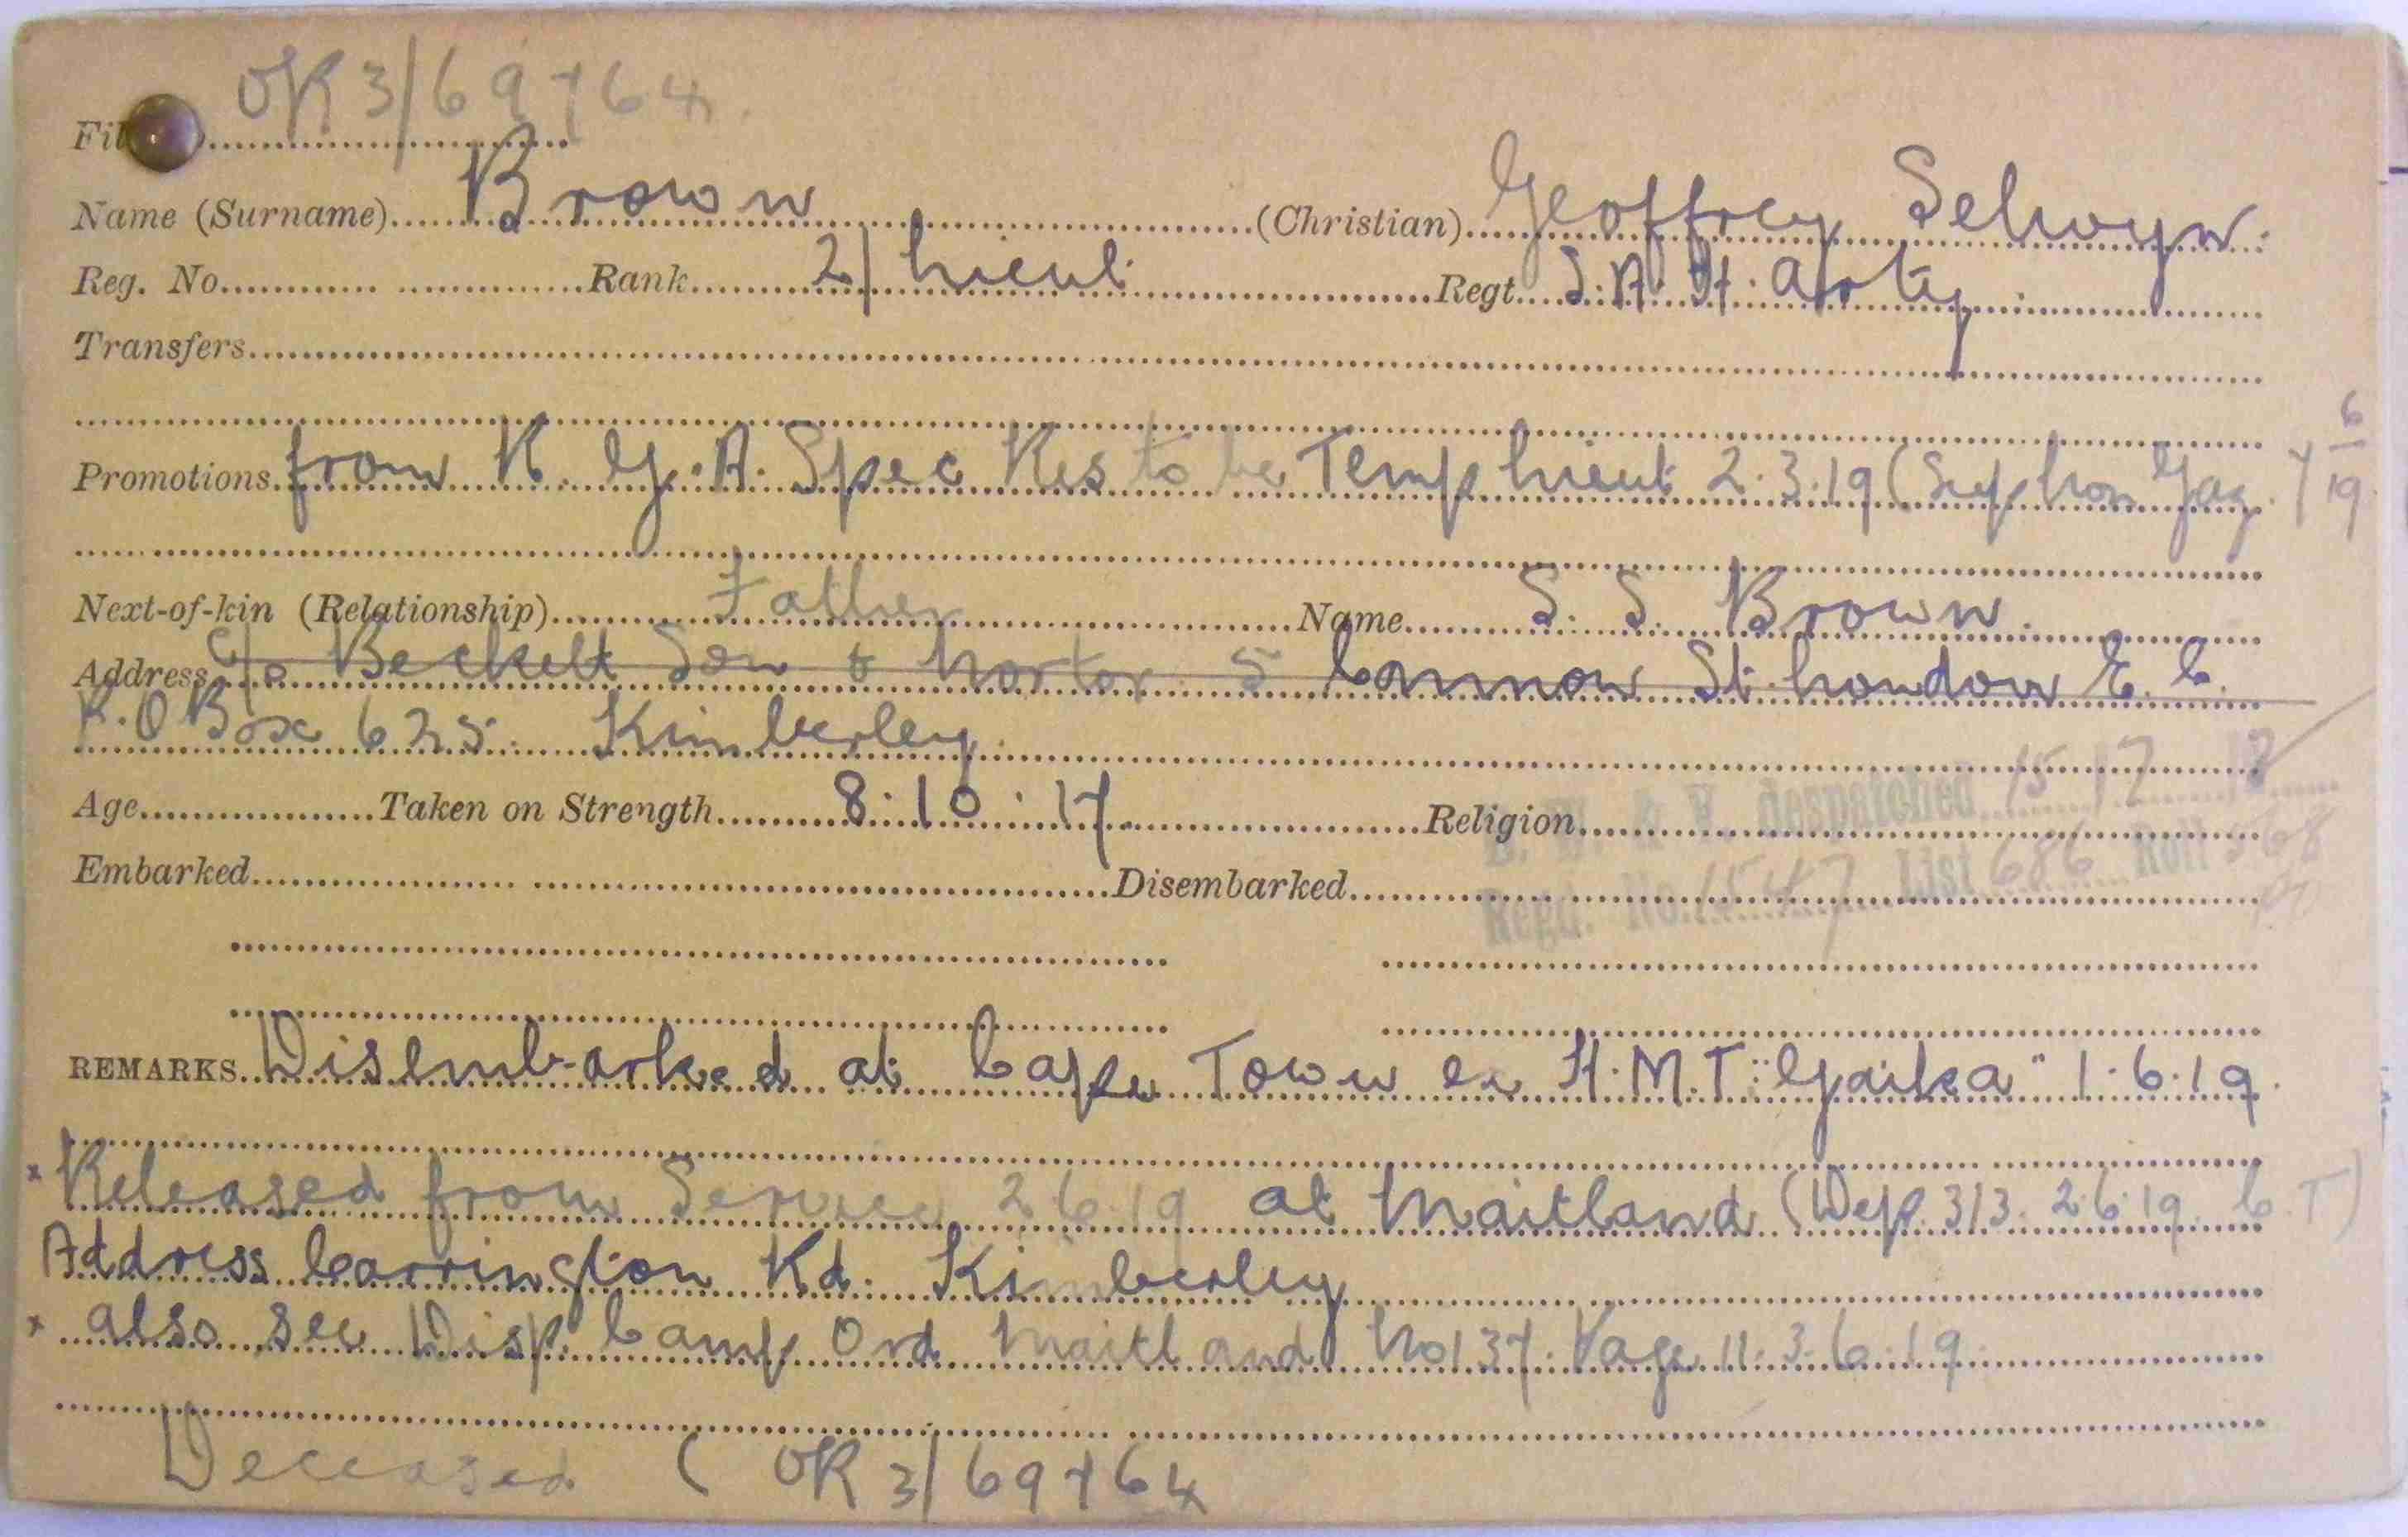 OR 3/69764.
File
Name (Surname) Brown (Christian) Geoffrey Selwyn.
Reg. No. Rank 2/Lieut. Regt. S.A.H. Arty.
Transfers
Promotions from R.G.A. Spec Res to be Temp Lieut 2.3.19 (Sup Lon Gaz. 7/6/19
Next-of-kin (Relationship) Father Name S. S. Brown.
Address c/o Beckett Son & 5 Cannon St. London E.C.
P.O Box 625. Kimberley.
Age Taken on Strength 8.10.17. Religion
despatched 15
Embarked Disembarked
Regd. No. List 686 Roll
REMARKS Disembarked at Cape Town ex H.M.T. "Gaika" 1.6.19.
x Released from Service 2.6.19 at Maitland (Dep. 313. 2.6.19. C.T)
Address Carrington Rd. Kimberley
x also see Disp. Camp Ord Maitland No 137. Page 11. 3.6.19.
Deceased ( OR 3/69764